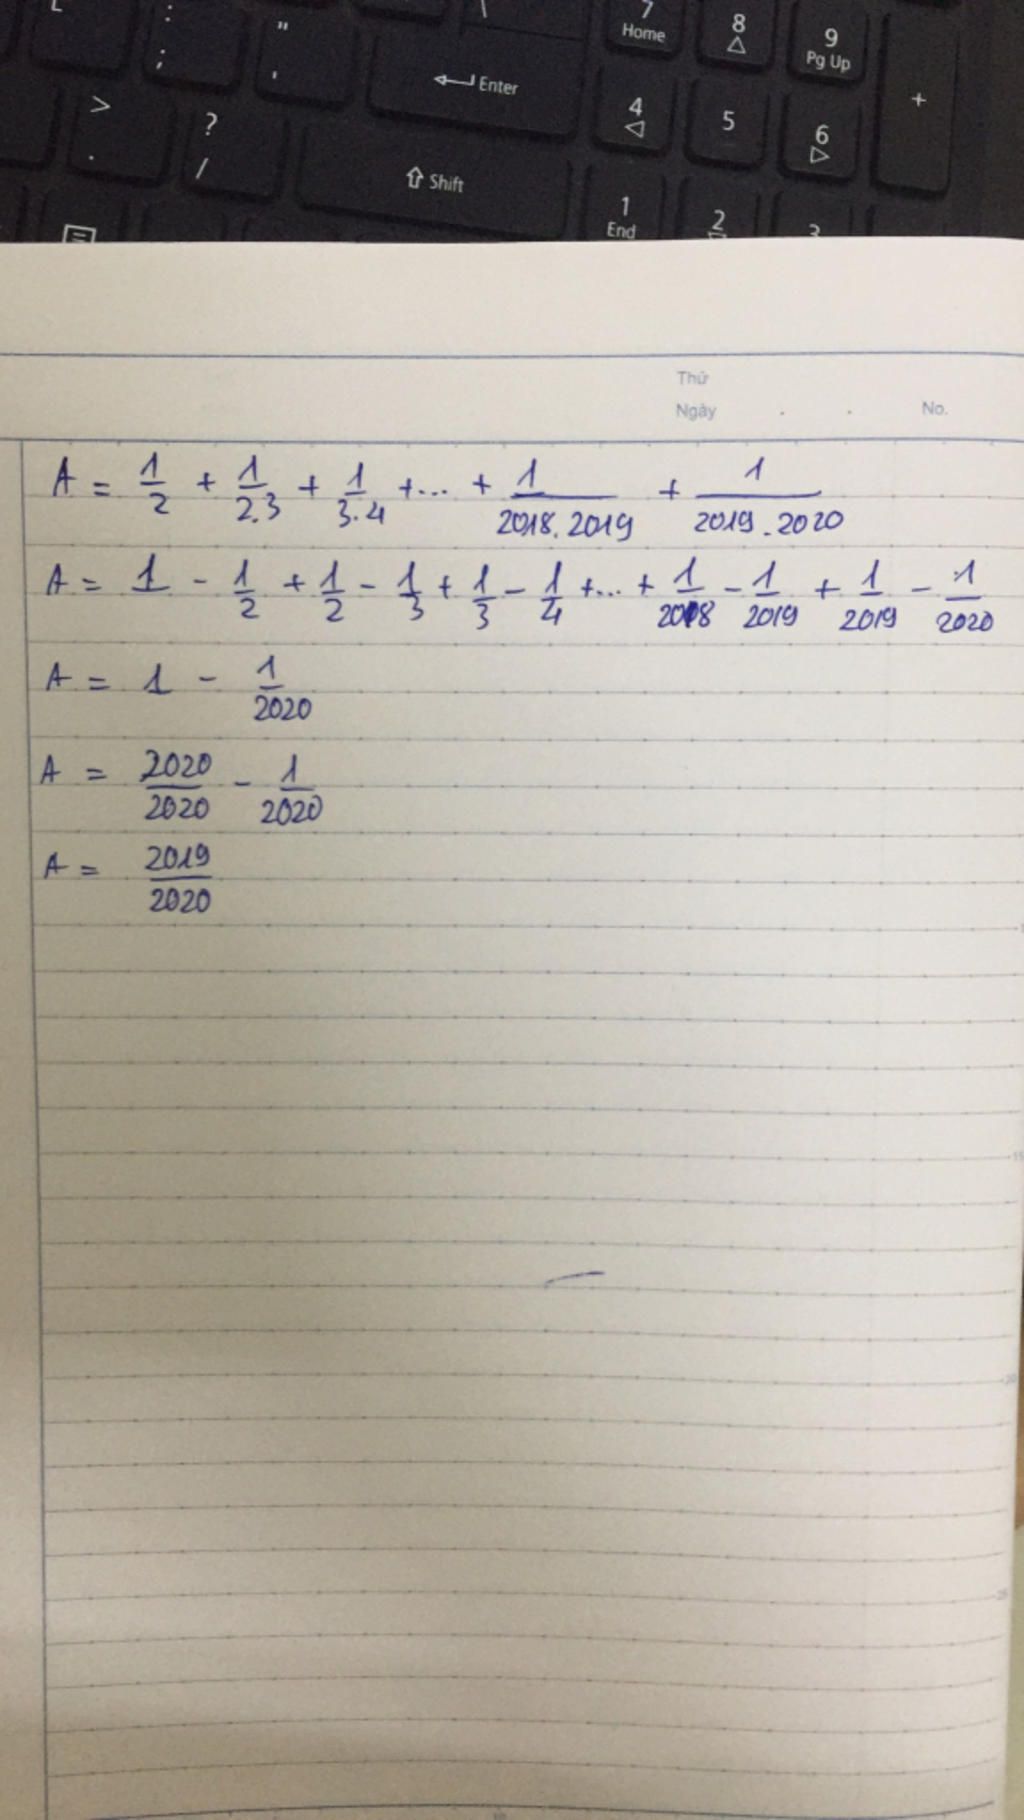 7 8 9
Home Pg Up
: " Enter 4 5 6 +
; '
> ? Shift 1 2 3
. / End
Thứ
Ngày . . No.
A = 1/2 + 1/2.3 + 1/3.4 + ... + 1/2018.2019 + 1/2019.2020
A = 1 - 1/2 + 1/2 - 1/3 + 1/3 - 1/4 + ... + 1/2018 - 1/2019 + 1/2019 - 1/2020
A = 1 - 1/2020
A = 2020/2020 - 1/2020
A = 2019/2020